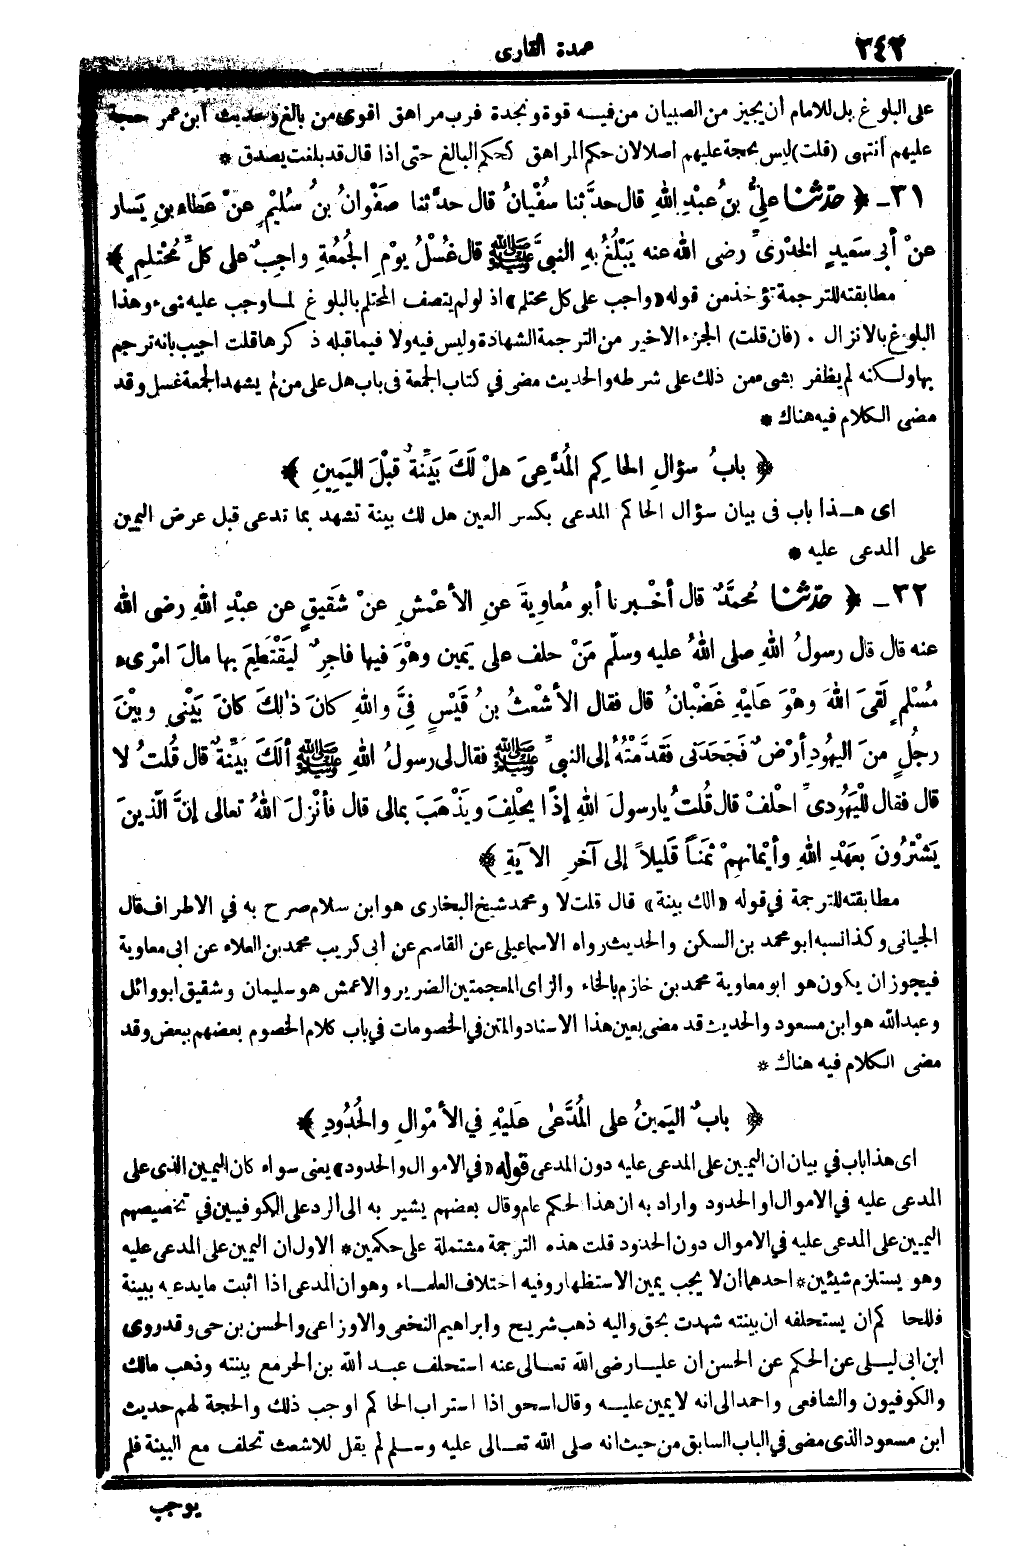 ٢٤٢
عمدة القارى
على البلوغ بل للامام أن يجيز من الصبيان من فيه قوة ونجدة فرب مراهق اقوى من بالغ وحديث ابن عمر حجة
عليهم انتهى (قلت) ليس بحجة عليهم اصلا لان حكم المراهق كحكم البالغ حتى اذا قال قد بلغت يصدق *
٣١ ـ ﴿ حَدَّثَنا عَلِيُّ بنُ عبْدِ اللهِ قال حدَّثنا سُفْيانُ قال حدَّثنا صَفْوَانُ بنُ سُلَيْمٍ عنْ عَطاءِ بنِ يَسار
عنْ أبى سَعِيدٍ الخدْرىِّ رضى الله عنه يَبْلُغُ بهِ النبيَّ ﷺ قال غُسْلُ يوْمِ الجُمُعَةِ واجِبٌ على كلِّ مُحْتَلِمٍ ﴾
مطابقته للترجمة تؤخذ من قوله «واجب على كل محتلم» اذ لو لم يتصف المحتلم بالبلوغ لما وجب عليه شىء وهذا
البلوغ بالانزال . (فان قلت) الجزء الاخير من الترجمة الشهادة وليس فيه ولا فيما قبله ذكرها قلت اجيب بانه ترجم
بها ولكنه لم يظفر بشىء من ذلك على شرطه والحديث مضى في كتاب الجمعة فى باب هل على من لم يشهد الجمعة غسل وقد
مضى الكلام فيه هناك *
﴿ بابُ سؤالِ الحاكِمِ المُدَّعِىَ هلْ لَكَ بَيِّنةٌ قبْلَ اليَمِينِ ﴾
اى هذا باب فى بيان سؤال الحاكم المدعى بكسر العين هل لك بينة تشهد بما تدعى قبل عرض اليمين
على المدعى عليه *
٣٢ ـ ﴿ حَدَّثَنا مُحمَّدٌ قال أخْبرنا أبو مُعاويَةَ عنِ الأعْمشِ عنْ شَقِيقٍ عن عبْدِ اللهِ رضى الله
عنه قال قال رسولُ اللهِ صلى اللهُ عليه وسلّم مَنْ حلف على يَمين وهْوَ فيها فاجِرٌ لِيَقْتَطِعَ بها مالَ امْرىء
مُسْلمٍ لَقىَ اللهَ وهْوَ عَلَيْهِ غَضْبانُ قال فقال الأشْعثُ بنُ قَيْسٍ فِىَّ واللهِ كانَ ذٰلِكَ كانَ بَيْنى وبيْنَ
رجُلٍ منَ اليهُودِ أرْضٌ فَجَحَدَنى فَقدَّمْتُهُ إلى النبيِّ ﷺ فقال لى رسولُ اللهِ ﷺ ألَكَ بَيِّنةٌ قال قُلتُ لا
قال فقال لِلْيَهُودىِّ احْلفْ قال قُلتُ يارسولَ اللهِ إذًا يحْلِفَ ويَذْهَبَ بمالى قال فأنْزلَ اللهُ تعالى إنَّ الّذينَ
يَشْترُونَ بعَهْدِ اللهِ وأيْمانِهِمْ ثمَناً قَليلاً إلى آخرِ الآيَةِ ﴾
مطابقته للترجمة في قوله «الك بينة» قال قلت لا ومحمد شيخ البخارى هو ابن سلام صرح به في الاطراف قال
الجيانى وكذا نسبه ابو محمد بن السكن والحديث رواه الاسماعيلى عن القاسم عن أبى كريب محمد بن العلاء عن ابى معاوية
فيجوز ان يكون هو ابو معاوية محمد بن خازم بالخاء والزاى المعجمتين الضرير والاعمش هو سليمان وشقيق ابو وائل
وعبدالله هو ابن مسعود والحديث قد مضى بعين هذا الاسناد والمتن في الخصومات في باب كلام الخصوم بعضهم ببعض وقد
مضى الكلام فيه هناك *
﴿ بابٌ اليَمينُ على المُدَّعٰى عَلَيْهِ في الأمْوالِ والحُدُودِ ﴾
اى هذا باب في بيان ان اليمين على المدعى عليه دون المدعى قوله «في الاموال والحدود» يعنى سواء كان اليمين الذى على
المدعى عليه في الاموال او الحدود واراد به ان هذا لحكم عام وقال بعضهم يشير به الى الرد على الكوفيين في تخصيصهم
اليمين على المدعى عليه في الاموال دون الحدود قلت هذه الترجمة مشتملة على حكمين* الاول ان اليمين على المدعى عليه
وهو يستلزم شيئين* احدهما ان لا يجب يمين الاستظهار وفيه اختلاف العلماء وهو ان المدعى اذا اثبت ما يدعيه ببينة
فللحاكم ان يستحلفه ان بينته شهدت بحق واليه ذهب شريح وابراهيم النخعى والاوزاعى والحسن بن حى وقد روى
ابن ابى ليلى عن الحكم عن الحسن ان عليا رضى الله تعالى عنه استحلف عبد الله بن الحر مع بينته وذهب مالك
والكوفيون والشافعى واحمد الى انه لا يمين عليه وقال اسحق اذا استراب الحاكم اوجب ذلك والحجة لهم حديث
ابن مسعود الذى مضى في الباب السابق من حيث انه صلى الله تعالى عليه وسلم لم يقل للاشعث تحلف مع البينة فلم
يوجب